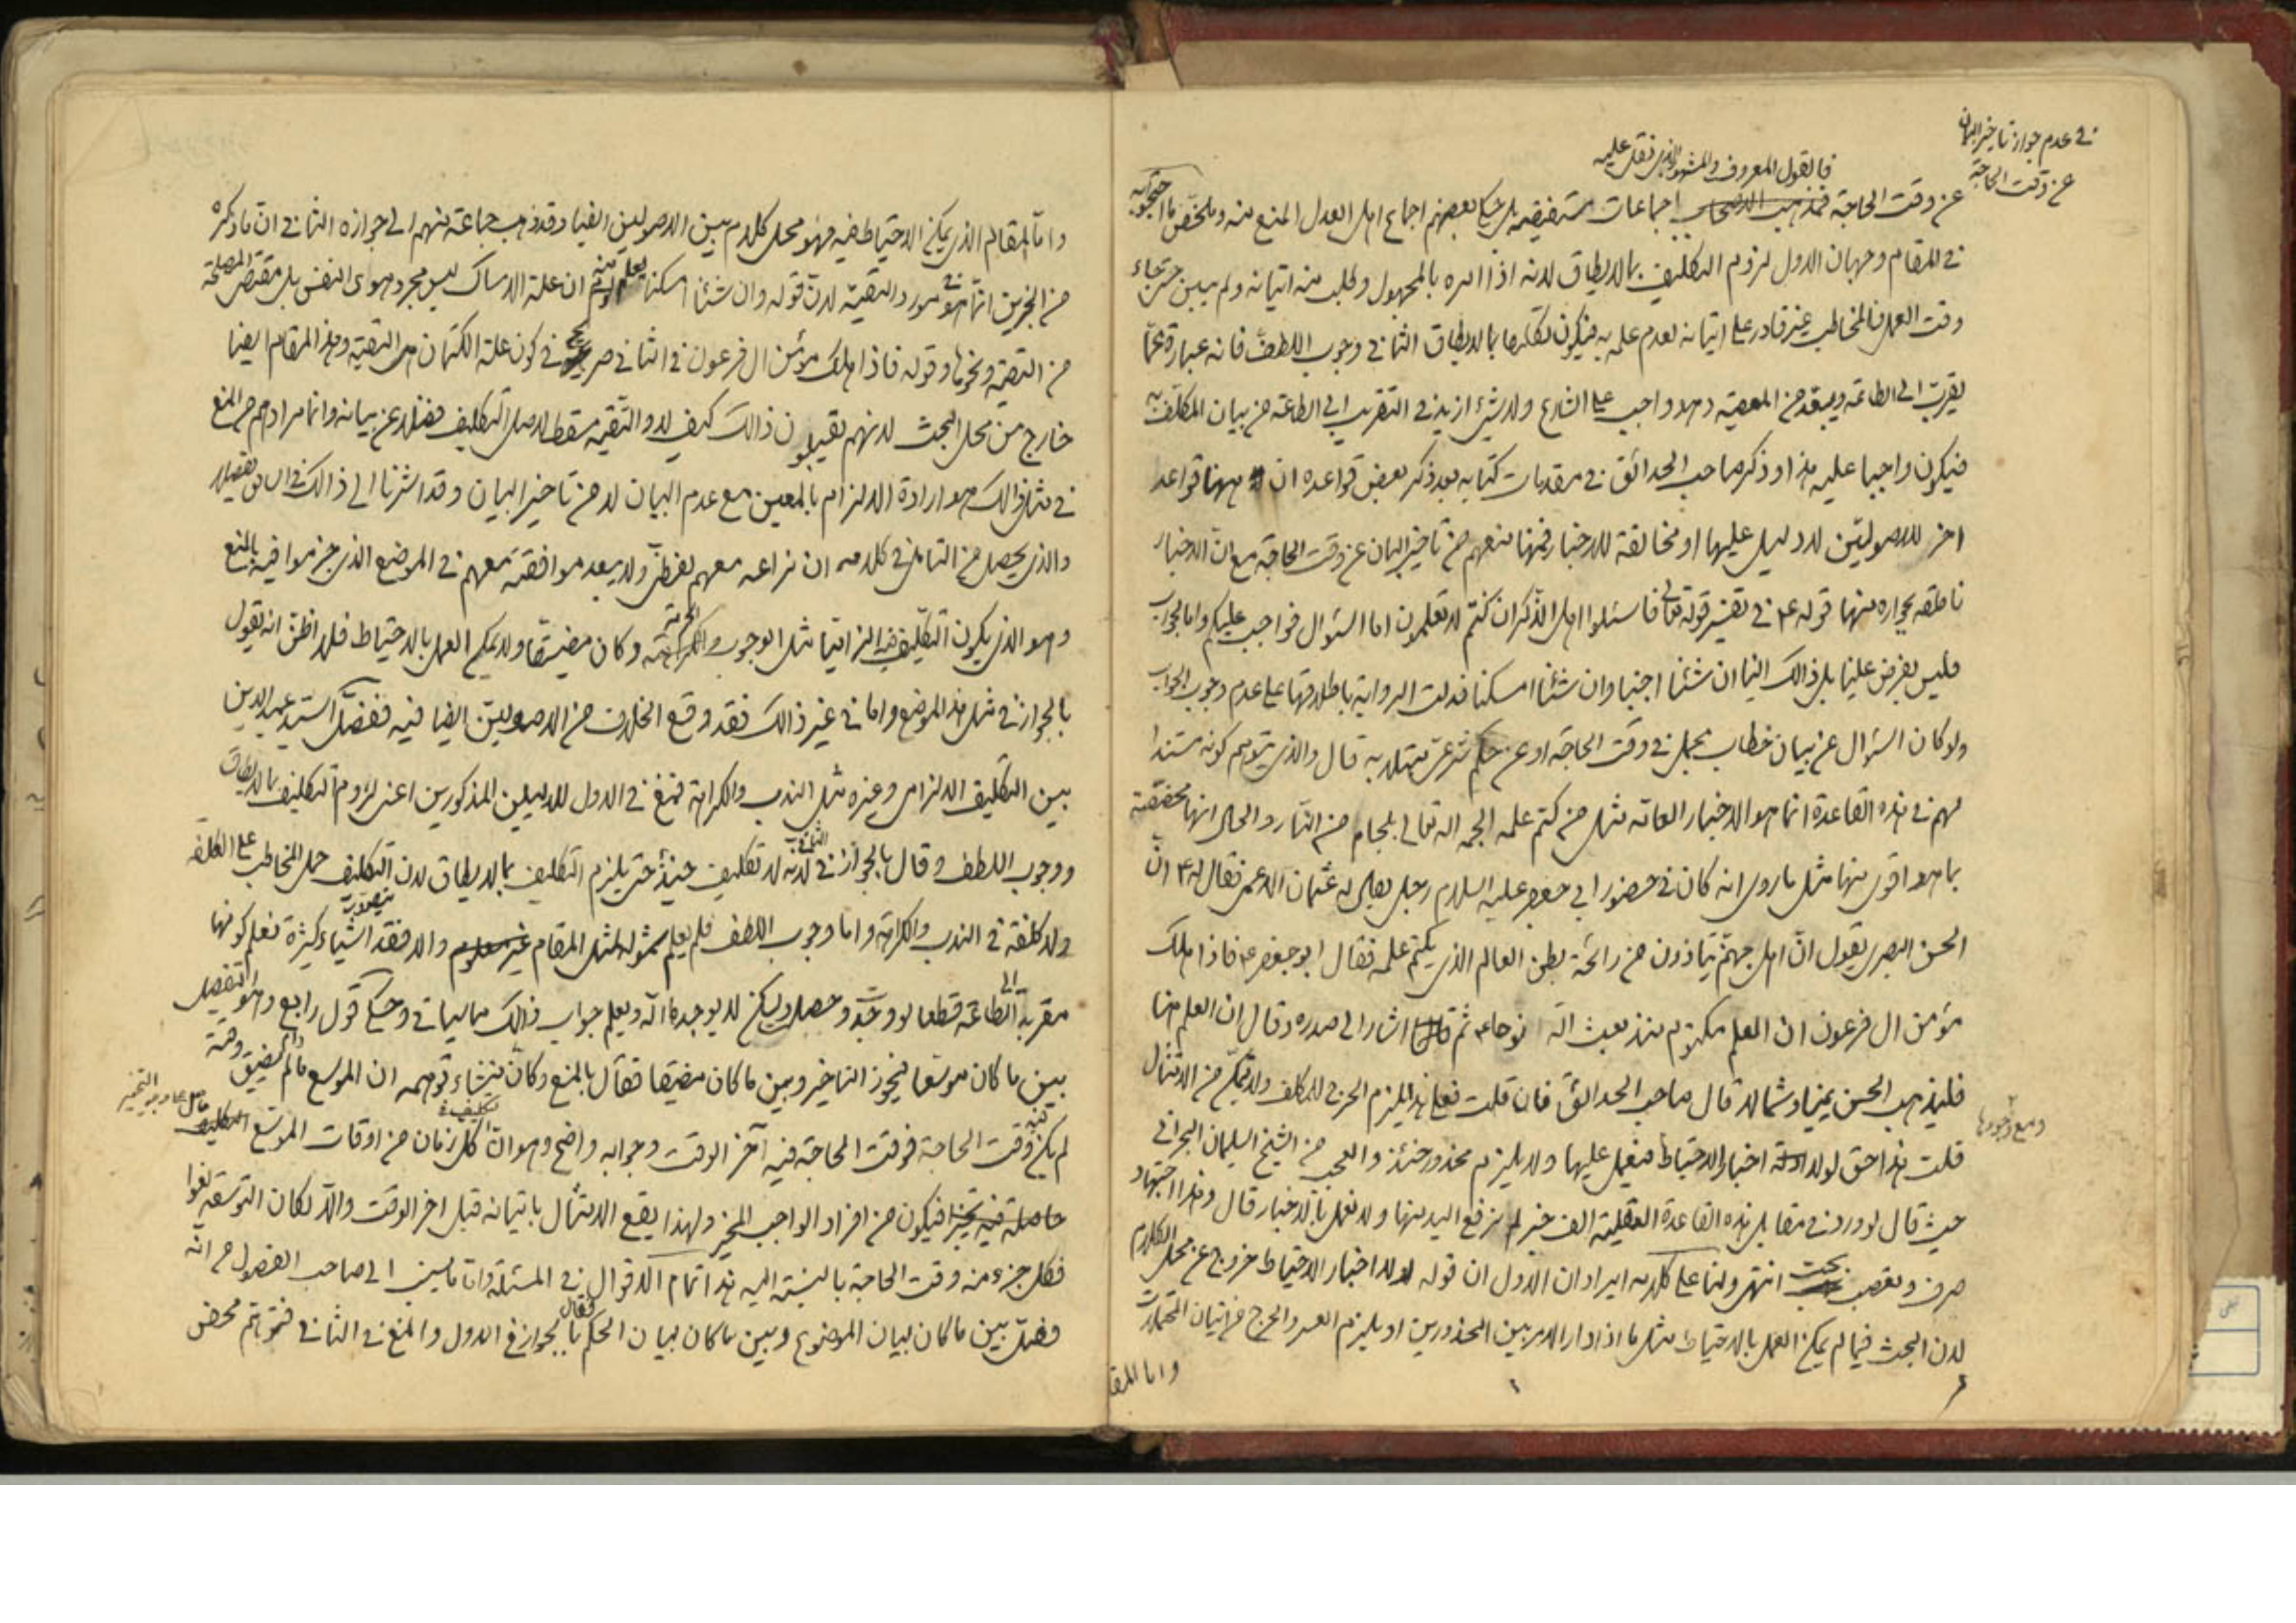 في عدم جواز تاخير البيان
عن وقت الحاجة
فالقول المعروف والمشهور الذي نقل عليه
عن وقت الحاجة فمذهب الاصحاب اجماعات مستفيضة بل حكى بعضهم اجماع اهل العدل المنع منه وملخص ما احتجوا به
في المقام وجهان الاول لزوم التكليف بما لا يطاق لانه اذا امره بالمجهول وطلب منه اتيانه ولم يبين حتى جاء
وقت العمل فالمخاطب غير قادر على اتيانه لعدم علمه به فيكون تكليفا بما لا يطاق الثاني وجوب اللطف فانه عبارة عما
يقرب الى الطاعة ويبعد من المعصية وهو واجب على الشارع ولا شيء ازيد في التقريب الى الطاعة من بيان المكلف به
فيكون واجبا عليه هذا وذكر صاحب الحدائق في مقدمات كتابه بعد ذكر بعض قواعده ان ههنا قواعد
اخر للاصوليين لا دليل عليها او مخالفة للاخبار فمنها منعهم من تاخير البيان عن وقت الحاجة مع ان الاخبار
ناطقة بجوازه منها قوله ع في تفسير قوله تعالى فاسئلوا اهل الذكر ان كنتم لا تعلمون اما السؤال فواجب عليكم واما الجواب
فليس بفرض علينا بل ذالك الينا ان شئنا اجبنا وان شئنا امسكنا فدلت الرواية باطلاقها على عدم وجوب الجواب
ولو كان السؤال عن بيان خطاب مجمل في وقت الحاجة او عن حكم شرعي مبتلا به قال والذي يتوهم كونه مستندا
لهم في هذه القاعدة انما هو الاخبار العامة مثل من كتم علمه الجمه الله تعالى بلجام من النار والحال انها محققة
بما هو اقوى منها مثل ما روى انه كان في حضور ابي جعفر عليه السلام رجل يقال له عثمان الاعمى فقال له ع ان
الحسن البصري يقول ان اهل جهنم يتاذون من رائحة بطن العالم الذي يكتم علمه فقال ابو جعفر ع فاذا هلك
مؤمن ال فرعون ان العلم مكتوم منذ بعث الله نوحا ع ثم اشار الى صدره وقال ان العلم هنا
فليذهب الحسن يمينا وشمالا قال صاحب الحدائق فان قلت فعلى هذا يلزم الحرج للمكلف ولا يتمكن من الامتثال
ومع وجودها
قلت هذا حق لولا ادلة اخبار الاحتياط فيعمل عليها ولا يلزم محذور حينئذ والعجب من الشيخ السليمان البحراني
حيث قال لو ورد في مقابل هذه القاعدة العقلية الف خبر لم نرفع اليد منها ولا نعمل بالاخبار قال وهذا اجتهاد
صرف وتعصب بحت انتهى ولنا على كلامه ايرادان الاول ان قوله لولا اخبار الاحتياط خروج عن محل الكلام
لان البحث فيما لم يمكن العمل بالاحتياط مثل ما اذا دار الامر بين المحذورين او يلزم العسر والحرج من اتيان المحتملات
واما المقا
واما المقام الذي يمكن الاحتياط فيه فهو محل كلام بين الاصوليين ايضا وقد ذهب جماعة منهم الى جوازه الثاني ان ما ذكره
من الخبرين انما هو في مورد التقية لان قوله وان شئنا امسكنا يعلم منه ان علة الامساك ليس مجرد هوى النفس بل مقتضى المصلحة
من التقية ونحوها وقوله فاذا هلك مؤمن ال فرعون في الثاني صريح في كون علة الكتمان هى التقية وهذا المقام ايضا
خارج من محل البحث لانهم يقبلون ذالك كيف لا والتقية مسقط لاصل التكليف فضلا عن بيانه وانما مرادهم من المنع
في مثل ذالك هو ارادة الالزام بالمعين مع عدم البيان لا من تاخير البيان وقد اشرنا الى ذالك في السابق تفصيلا
والذي يحصل من التامل في كلامه ان نزاعه معهم لفظي ولا يبعد موافقته معهم في الموضع الذي جزموا فيه بالمنع
وهو الذي يكون التكليف فيه الزاميا مثل الوجوب والحرمة وكان مضيقا ولا يمكن العمل بالاحتياط فلا اظن انه يقول
بالجواز في مثل هذا الموضع واما في غير ذالك فقد وقع الخلاف من الاصوليين ايضا فيه ففصل السيد عميد الدين
بين التكليف الالزامى وغيره مثل الندب والكراهة فمنع في الاول للدليلين المذكورين اعني لزوم التكليف بما لا يطاق
ووجوب اللطف وقال بالجواز في الثاني لانه لا تكليف حينئذ حتى يلزم التكليف بما لا يطاق لان التكليف حمل المخاطب على الكلفة
ولا كلفة في الندب والكراهة واما وجوب اللطف فلم يعلم شموله لمثل المقام والا فقد اشياء كثيرة نعلم كونها
مقربة الى الطاعة قطعا لو وجدت وحصل ولكن لا يوجدها الله ويعلم جواب ذالك مما سياتى وحكى قول رابع وهو التفصيل
بين ما كان موسعا فيجوز التاخير وبين ما كان مضيقا فقال بالمنع وكان منشاء توهمه ان الموسع ما لم يضيق وقته
لم يكن وقت الحاجة فوقت الحاجة فيه آخر الوقت وجوابه واضح وهو ان كل زمان من اوقات الموسع التكليف
حاصلة فيه فيكون من افراد الواجب المخير ولهذا يقع الامتثال باتيانه قبل اخر الوقت والا لكان التوسعة لغوا
فكل جزء منه وقت الحاجة بالنسبة اليه هذا تمام الاقوال في المسئلة واما ما نسب الى صاحب الفصول من انه
فصل بين ما كان لبيان الموضوع وبين ما كان لبيان الحكم فقال بالجواز في الاول والمنع في الثاني فتوهم محض